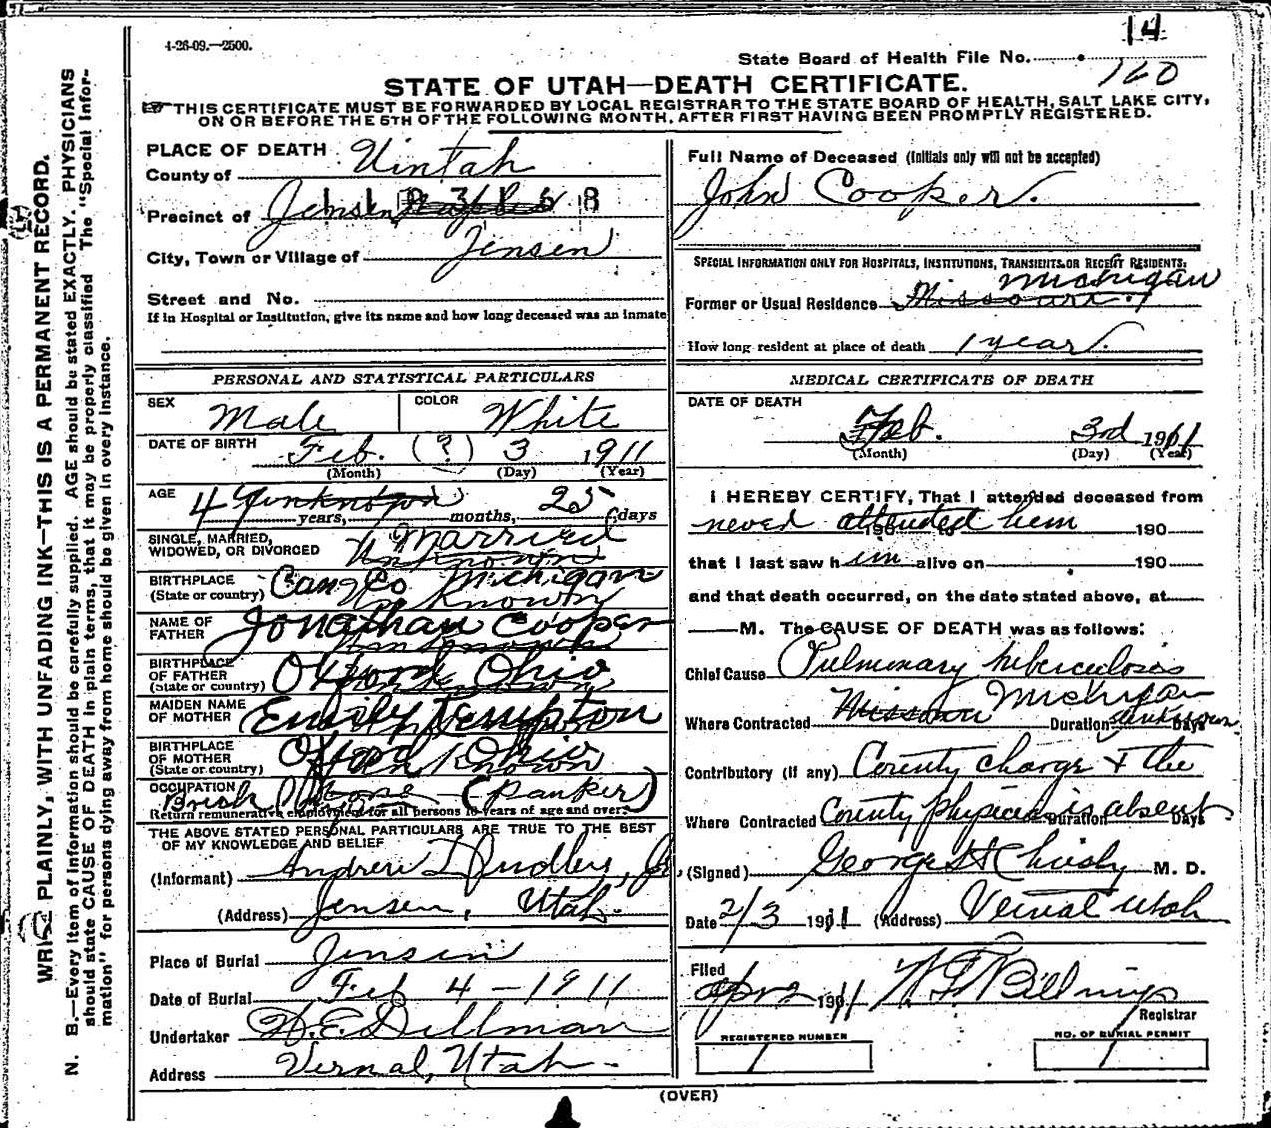 14
4-26-09.—2500.
State Board of Health File No.
160
STATE OF UTAH—DEATH CERTIFICATE.
THIS CERTIFICATE MUST BE FORWARDED BY LOCAL REGISTRAR TO THE STATE BOARD OF HEALTH, SALT LAKE CITY,
ON OR BEFORE THE 5TH OF THE FOLLOWING MONTH, AFTER FIRST HAVING BEEN PROMPTLY REGISTERED.
WRITE PLAINLY, WITH UNFADING INK—THIS IS A PERMANENT RECORD.
N. B.—Every item of information should be carefully supplied. AGE should be stated EXACTLY. PHYSICIANS
should state CAUSE OF DEATH in plain terms, that it may be properly classified The "Special Infor-
mation" for persons dying away from home should be given in every instance.
PLACE OF DEATH
County of Uintah
Precinct of Jensen
City, Town or Village of Jensen
Street and No.
If in Hospital or Institution, give its name and how long deceased was an inmate
PERSONAL AND STATISTICAL PARTICULARS
SEX Male COLOR White
DATE OF BIRTH Feb. (?) 3 1911
(Month) (Day) (Year)
AGE 4 unknown 25
years, months, days
SINGLE, MARRIED,
WIDOWED, OR DIVORCED Married
Unknown
BIRTHPLACE
(State or country) Co Michigan
Unknown
NAME OF
FATHER Jonathan Cooper
Unknown
BIRTHPLACE
OF FATHER
(State or country) Oxford Ohio
Unknown
MAIDEN NAME
OF MOTHER Emily Tempton
BIRTHPLACE
OF MOTHER
(State or country) Oxford Ohio
Unknown
OCCUPATION
Brick (Ranker)
Return remunerative employment for all persons 10 years of age and over.
THE ABOVE STATED PERSONAL PARTICULARS ARE TRUE TO THE BEST
OF MY KNOWLEDGE AND BELIEF
(Informant) Andrew Dudley, Jr
(Address) Jensen, Utah.
Place of Burial Jensen
Date of Burial Feb 4 - 1911
Undertaker W. E. Dillman
Address Vernal, Utah
Full Name of Deceased (Initials only will not be accepted)
John Cooper.
SPECIAL INFORMATION ONLY FOR HOSPITALS, INSTITUTIONS, TRANSIENTS OR RECENT RESIDENTS.
Michigan
Former or Usual Residence Missouri.
How long resident at place of death 1 year.
MEDICAL CERTIFICATE OF DEATH
DATE OF DEATH
Feb. 3rd 1911
(Month) (Day) (Year)
I HEREBY CERTIFY, That I attended deceased from
never attended him 190
that I last saw him alive on 190
and that death occurred, on the date stated above, at
M. The CAUSE OF DEATH was as follows:
Chief Cause Pulmonary tuberculosis
Where Contracted Missouri Michigan Duration unknown Days
Contributory (if any) County charge & the
Where Contracted County physician is absent Duration Days
(Signed) George H Christy M. D.
Date 2/3 1911 (Address) Vernal Utah
Filed
Apr 2 1911 N. F. Billings
Registrar
REGISTERED NUMBER
1
NO. OF BURIAL PERMIT
1
(OVER)